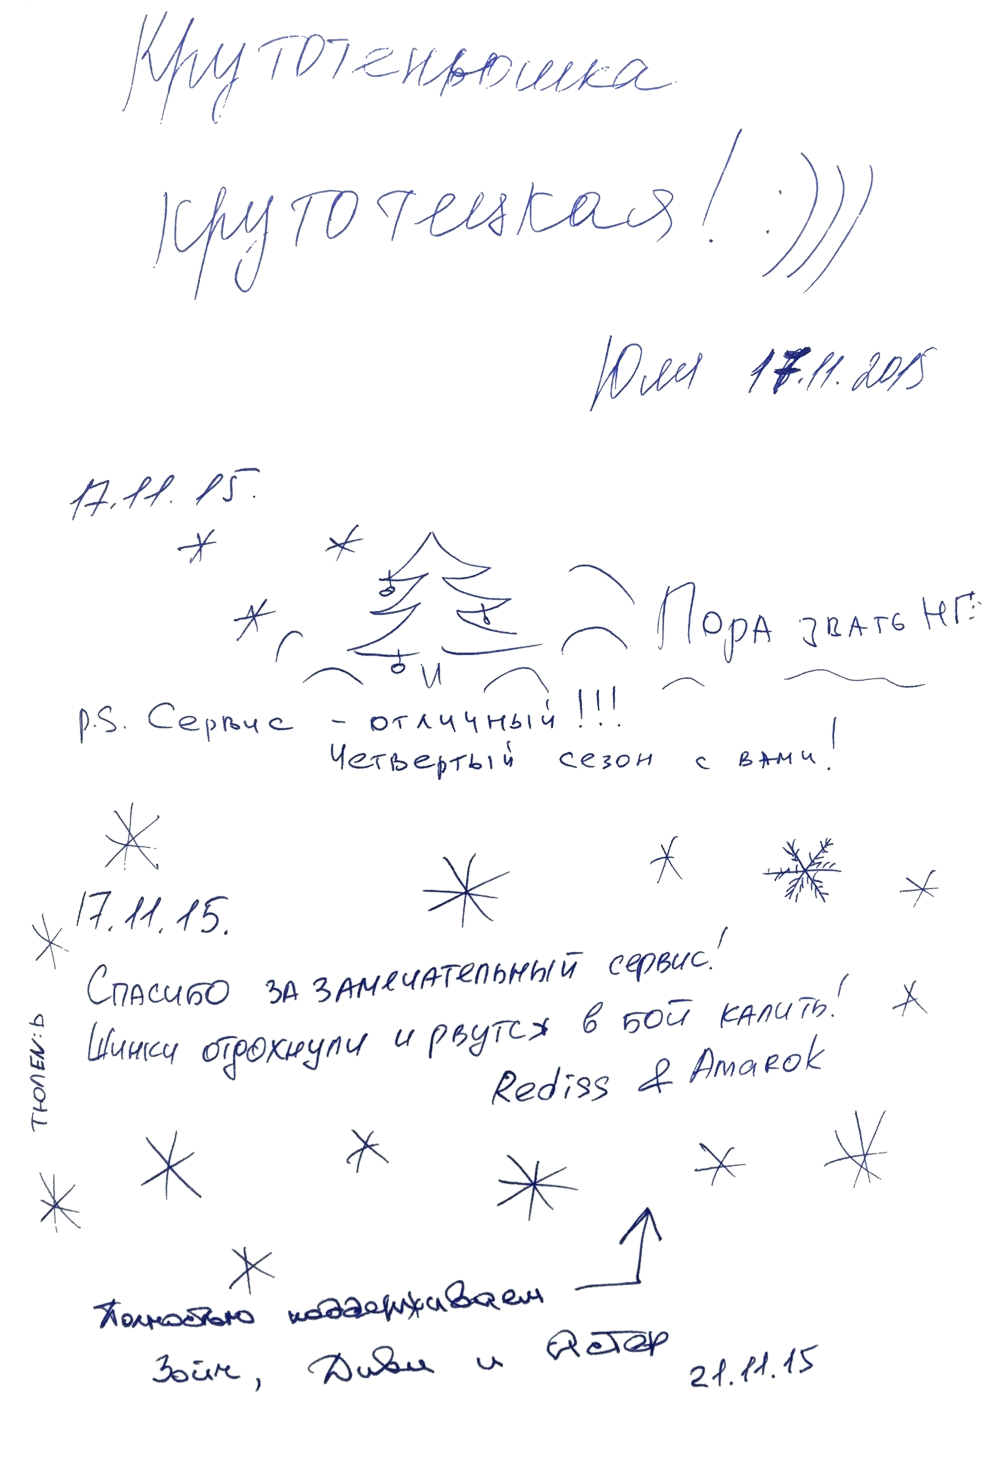 Крутотенюшка
крутотецкая! :)))
Юля 17.11.2015
17.11.15.
Пора звать НГ:
и
P.S. Сервис - отличный!!!
Четвертый сезон с вами!
17.11.15.
Спасибо за замечательный сервис!
Шинки отдохнули и рвутся в бой калить!
Rediss & Amarok
ТЮЛЕN:Ь
Полностью поддерживаем
Зойч, Диви и Астер
21.11.15